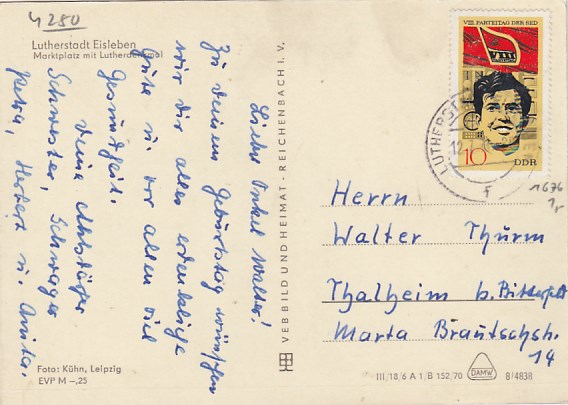 4280
Lutherstadt Eisleben
Marktplatz mit Lutherdenkmal
Lieber Onkel Walter!
Zu deinem Geburtstag wünschen
wir dir alles erdenkliche
Gute u. vor allem viel
Gesundheit.
Deine
Schwester, Schwager
Petra, Herbert u. Anita.
Foto: Kühn, Leipzig
EVP M –,25
VEB BILD UND HEIMAT · REICHENBACH I. V.
VIII. PARTEITAG DER SED
10
DDR
LUTHERST
12
f
1676
Herrn
Walter Thurm
Thalheim b. Bitterfeld
Marta Brautzschstr.
14
III/18/6 A 1/B 152/70
DAMW
8/4838